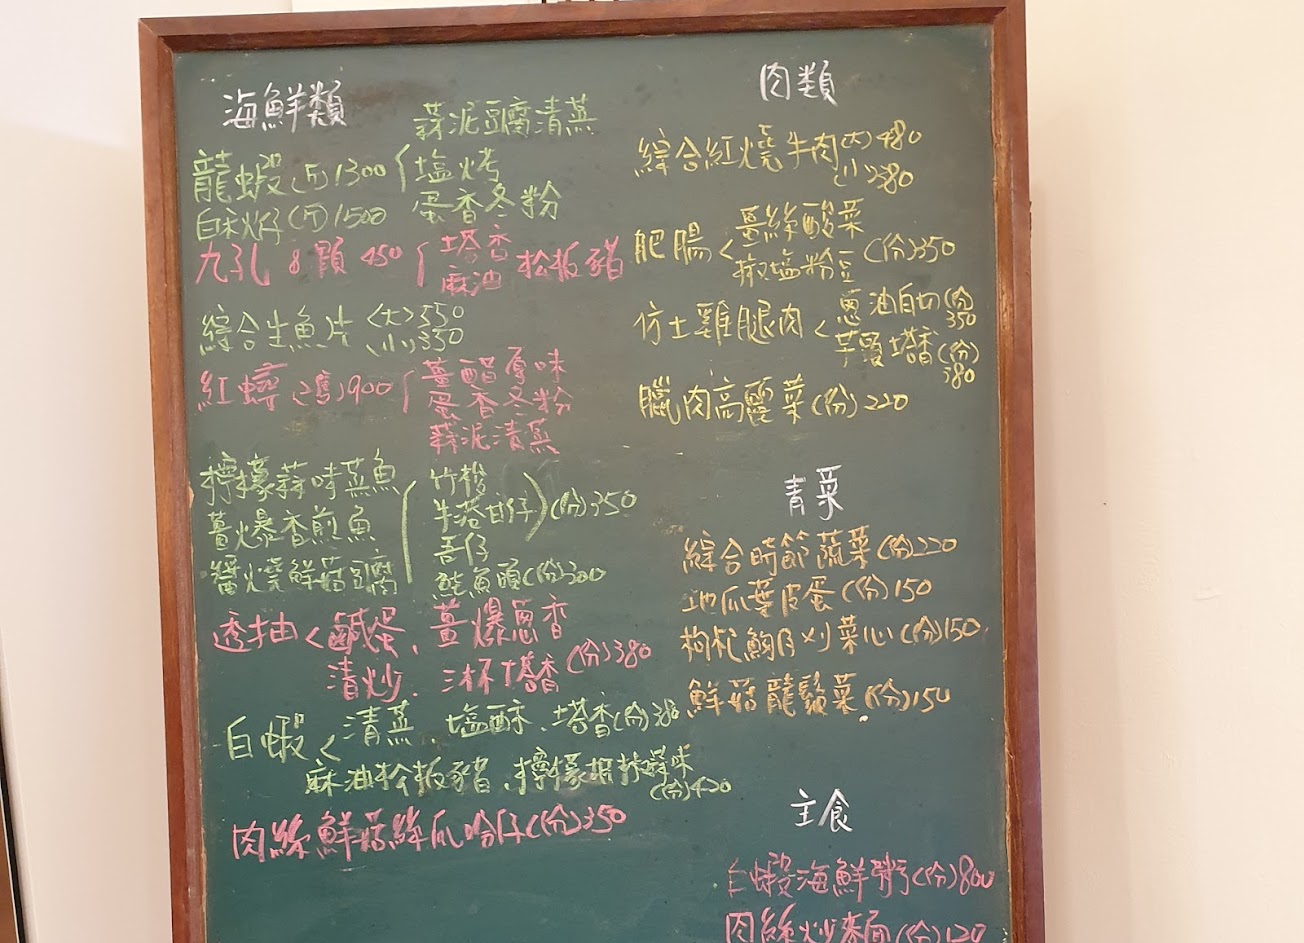 海鮮類
蒜泥豆腐清蒸
龍蝦(斤)1300
塩烤
蛋香冬粉
(斤)1500
九孔 8顆 450
塔香
麻油
松板豬
綜合生魚片(大)550
(小)350
紅蟳(隻)900
薑醋原味
蛋香冬粉
蒜泥清蒸
檸檬蒜味蒸魚
薑爆香煎魚
醬燒鮮菇豆腐
竹梭
午仔
(份)350
魚頭(份)300
透抽<鹹蛋、薑爆蔥香
清炒、三杯塔香(份)380
白蝦<清蒸、塩酥、塔香(份)380
麻油松板豬、檸檬椒麻味
(份)420
肉絲鮮菇絲瓜吻仔(份)350
肉類
綜合紅燒牛肉(大)480
(小)380
肥腸<
薑絲酸菜
椒塩粉豆
(份)350
仿土雞腿肉<
蔥油白切(份)350
塔香(份)380
臘肉高麗菜(份)220
青菜
綜合時節蔬菜(份)220
地瓜葉皮蛋(份)150
枸杞魩仔刈菜心(份)150
鮮菇龍鬚菜(份)150
主食
白蝦海鮮粥(份)800
肉絲炒麵(份)120